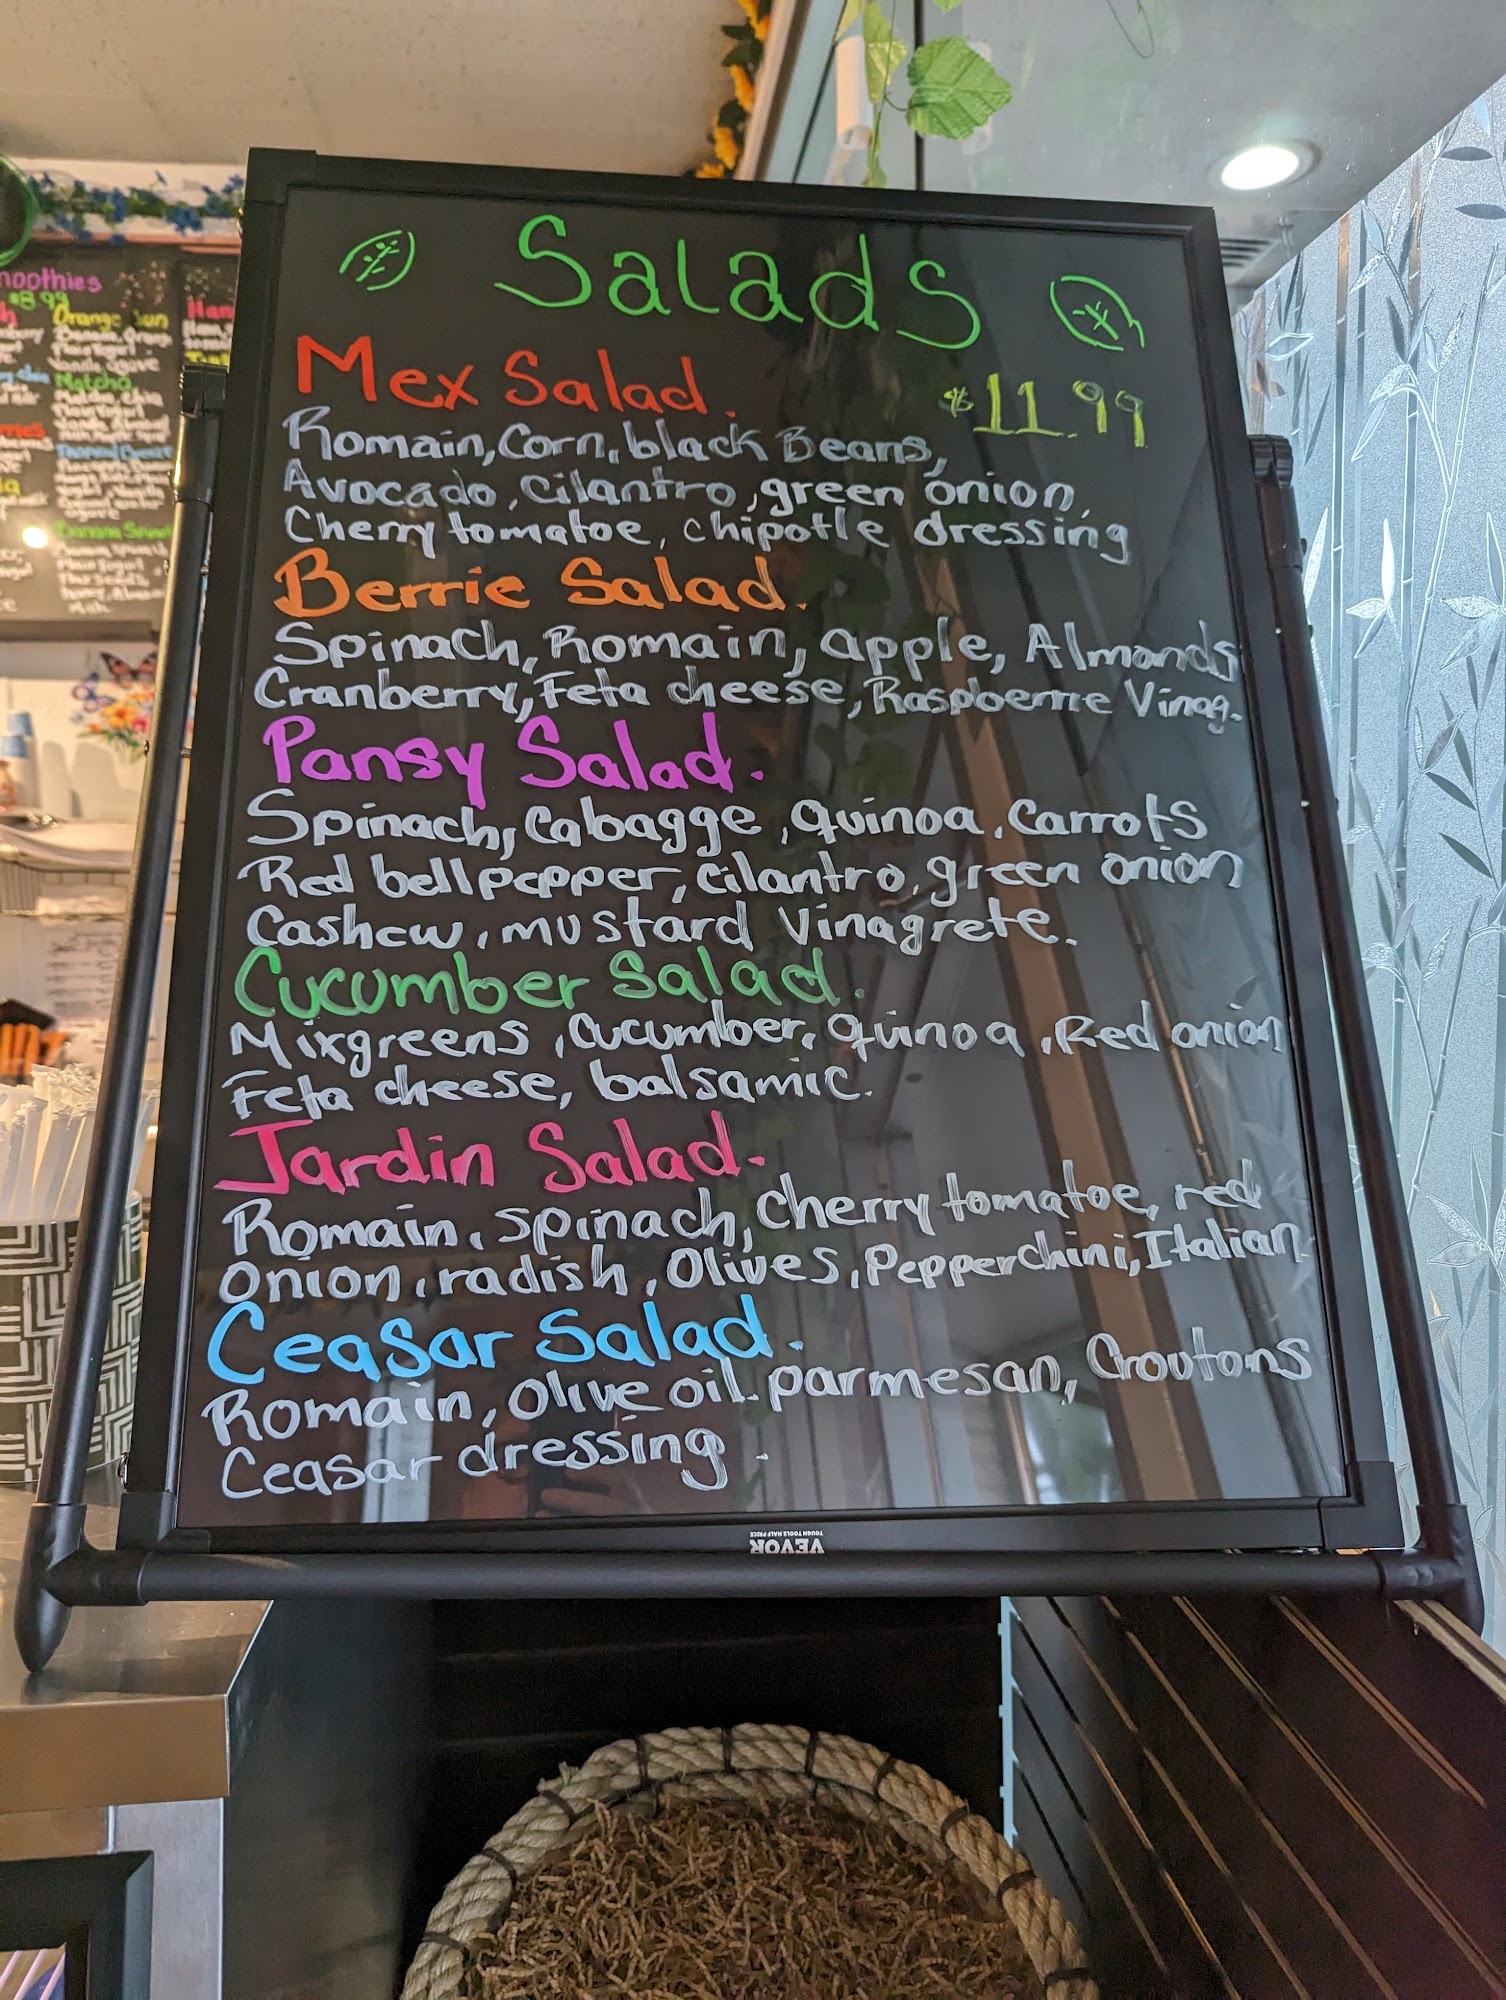 Salads
Mex Salad.
$11.99
Romain, Corn, black Beans,
Avocado, Cilantro, green onion,
Cherry tomatoe, chipotle dressing
Berrie Salad.
Spinach, Romain, apple, Almonds
Cranberry, Feta cheese, Raspberrie Vinag.
Pansy Salad.
Spinach, Cabagge, quinoa, Carrots
Red bell pepper, cilantro, green onion
Cashew, mustard Vinagrete.
Cucumber Salad.
Mixgreens, Cucumber, quinoa, Red onion
Feta cheese, balsamic.
Jardin Salad.
Romain, spinach, cherry tomatoe, red
Onion, radish, Olives, Pepperchini, Italian
Ceasar Salad.
Romain, Olive oil. parmesan, Croutons
Ceasar dressing.
VEVOR
TOUGH TOOLS HALF PRICE
moothies
$8.99
Orange Sun
Matcha